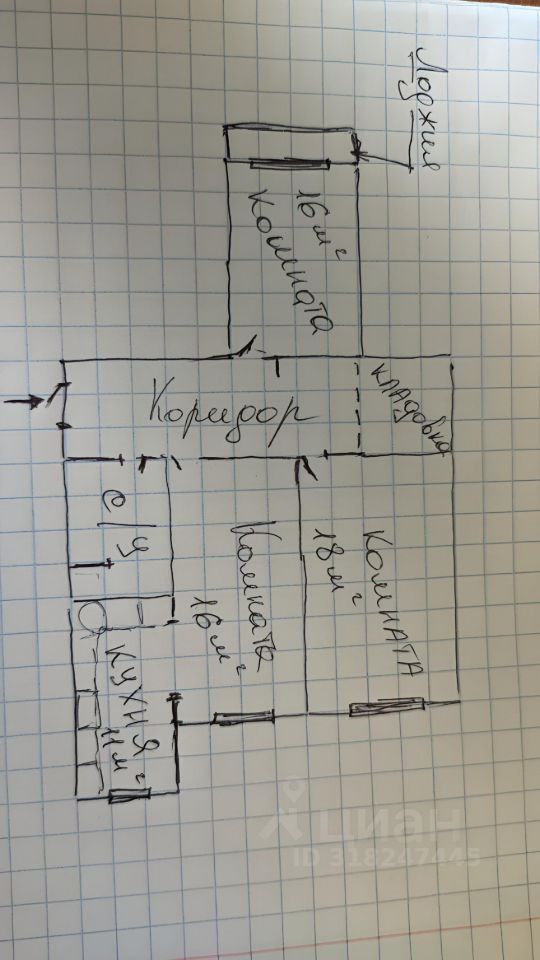 Лоджия
16 м²
Комната
Кладовка
Коридор
с/у
Комната
16 м²
Комната
18 м²
Кухня
11 м²
циан
ID 318247445